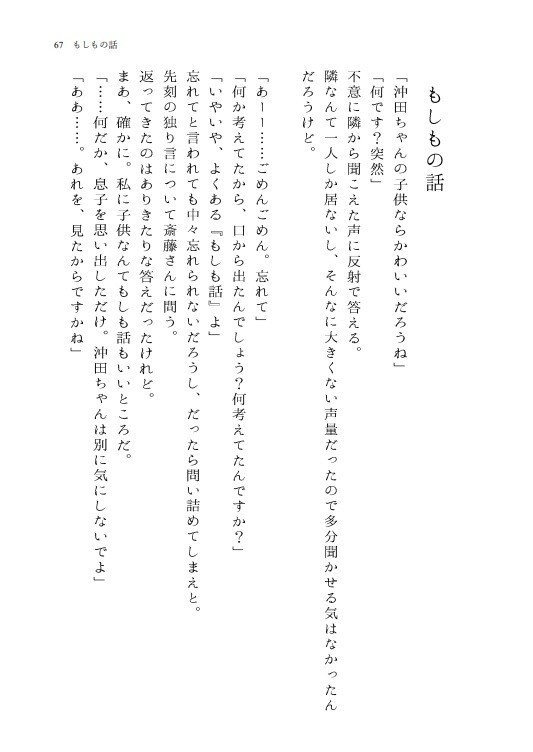 67 もしもの話
もしもの話
「沖田ちゃんの子供ならかわいいだろうね」
「何です？突然」
不意に隣から聞こえた声に反射で答える。
隣なんて一人しか居ないし、そんなに大きくない声量だったので多分聞かせる気はなかったん
だろうけど。
「あーー……ごめんごめん。忘れて」
「何か考えてたから、口から出たんでしょう？何考えてたんですか？」
「いやいや、よくある『もしも話』よ」
忘れてと言われても中々忘れられないだろうし、だったら問い詰めてしまえと。
先刻の独り言について斎藤さんに問う。
返ってきたのはありきたりな答えだったけれど。
まあ、確かに。私に子供なんてもしも話もいいところだ。
「……何だか、息子を思い出しただけ。沖田ちゃんは別に気にしないでよ」
「ああ……。あれを、見たからですかね」